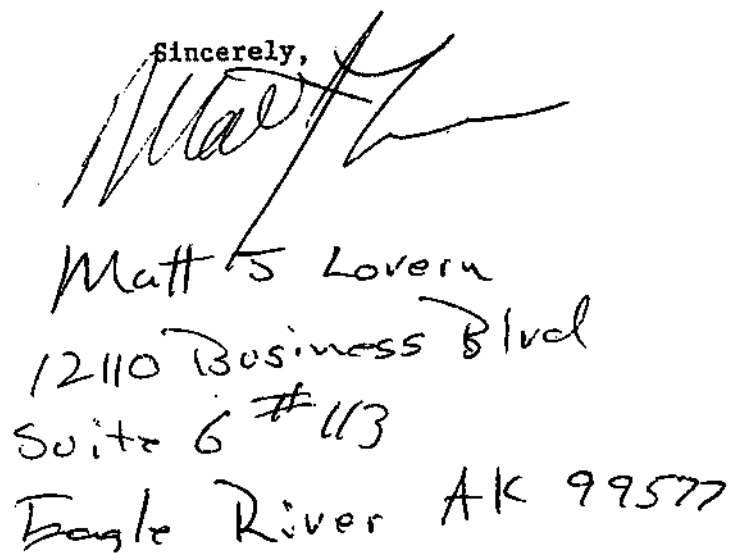 Sincerely,
Matt J Lovern
12110 Business Blvd
Suite 6 #113
Eagle River AK 99577